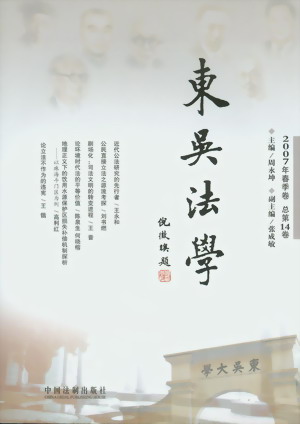 東吳法學
倪徵𣋉題
2007年春季卷 总第14卷
主编/周永坤 副主编/张成敏
近代公法研究的先行者/王永和
公民直接立法之源流考探/刘书燃
剧场化：司法文明的转变进程/王 晋
论环境时代法的平等价值/陈泉生 何晓榕
地理正义下的饮用水源保护区损失补偿机制探析
——以珠海斗门区为例/高利红
论立法不作为的违宪/王 锴
東吳大學
中国法制出版社